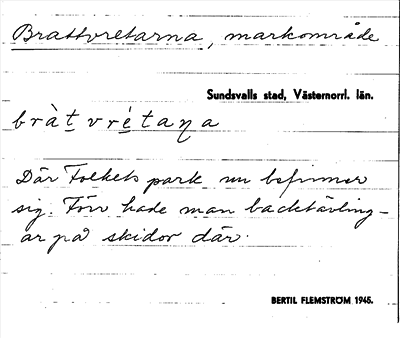 Brattvretarna, markområde
Sundsvalls stad, Västernorrl. län.
bràt vrétaṇa
Där Folkets park nu befinner
sig. Förr hade man backtävling-
ar på skidor där.
BERTIL FLEMSTRÖM 1945.